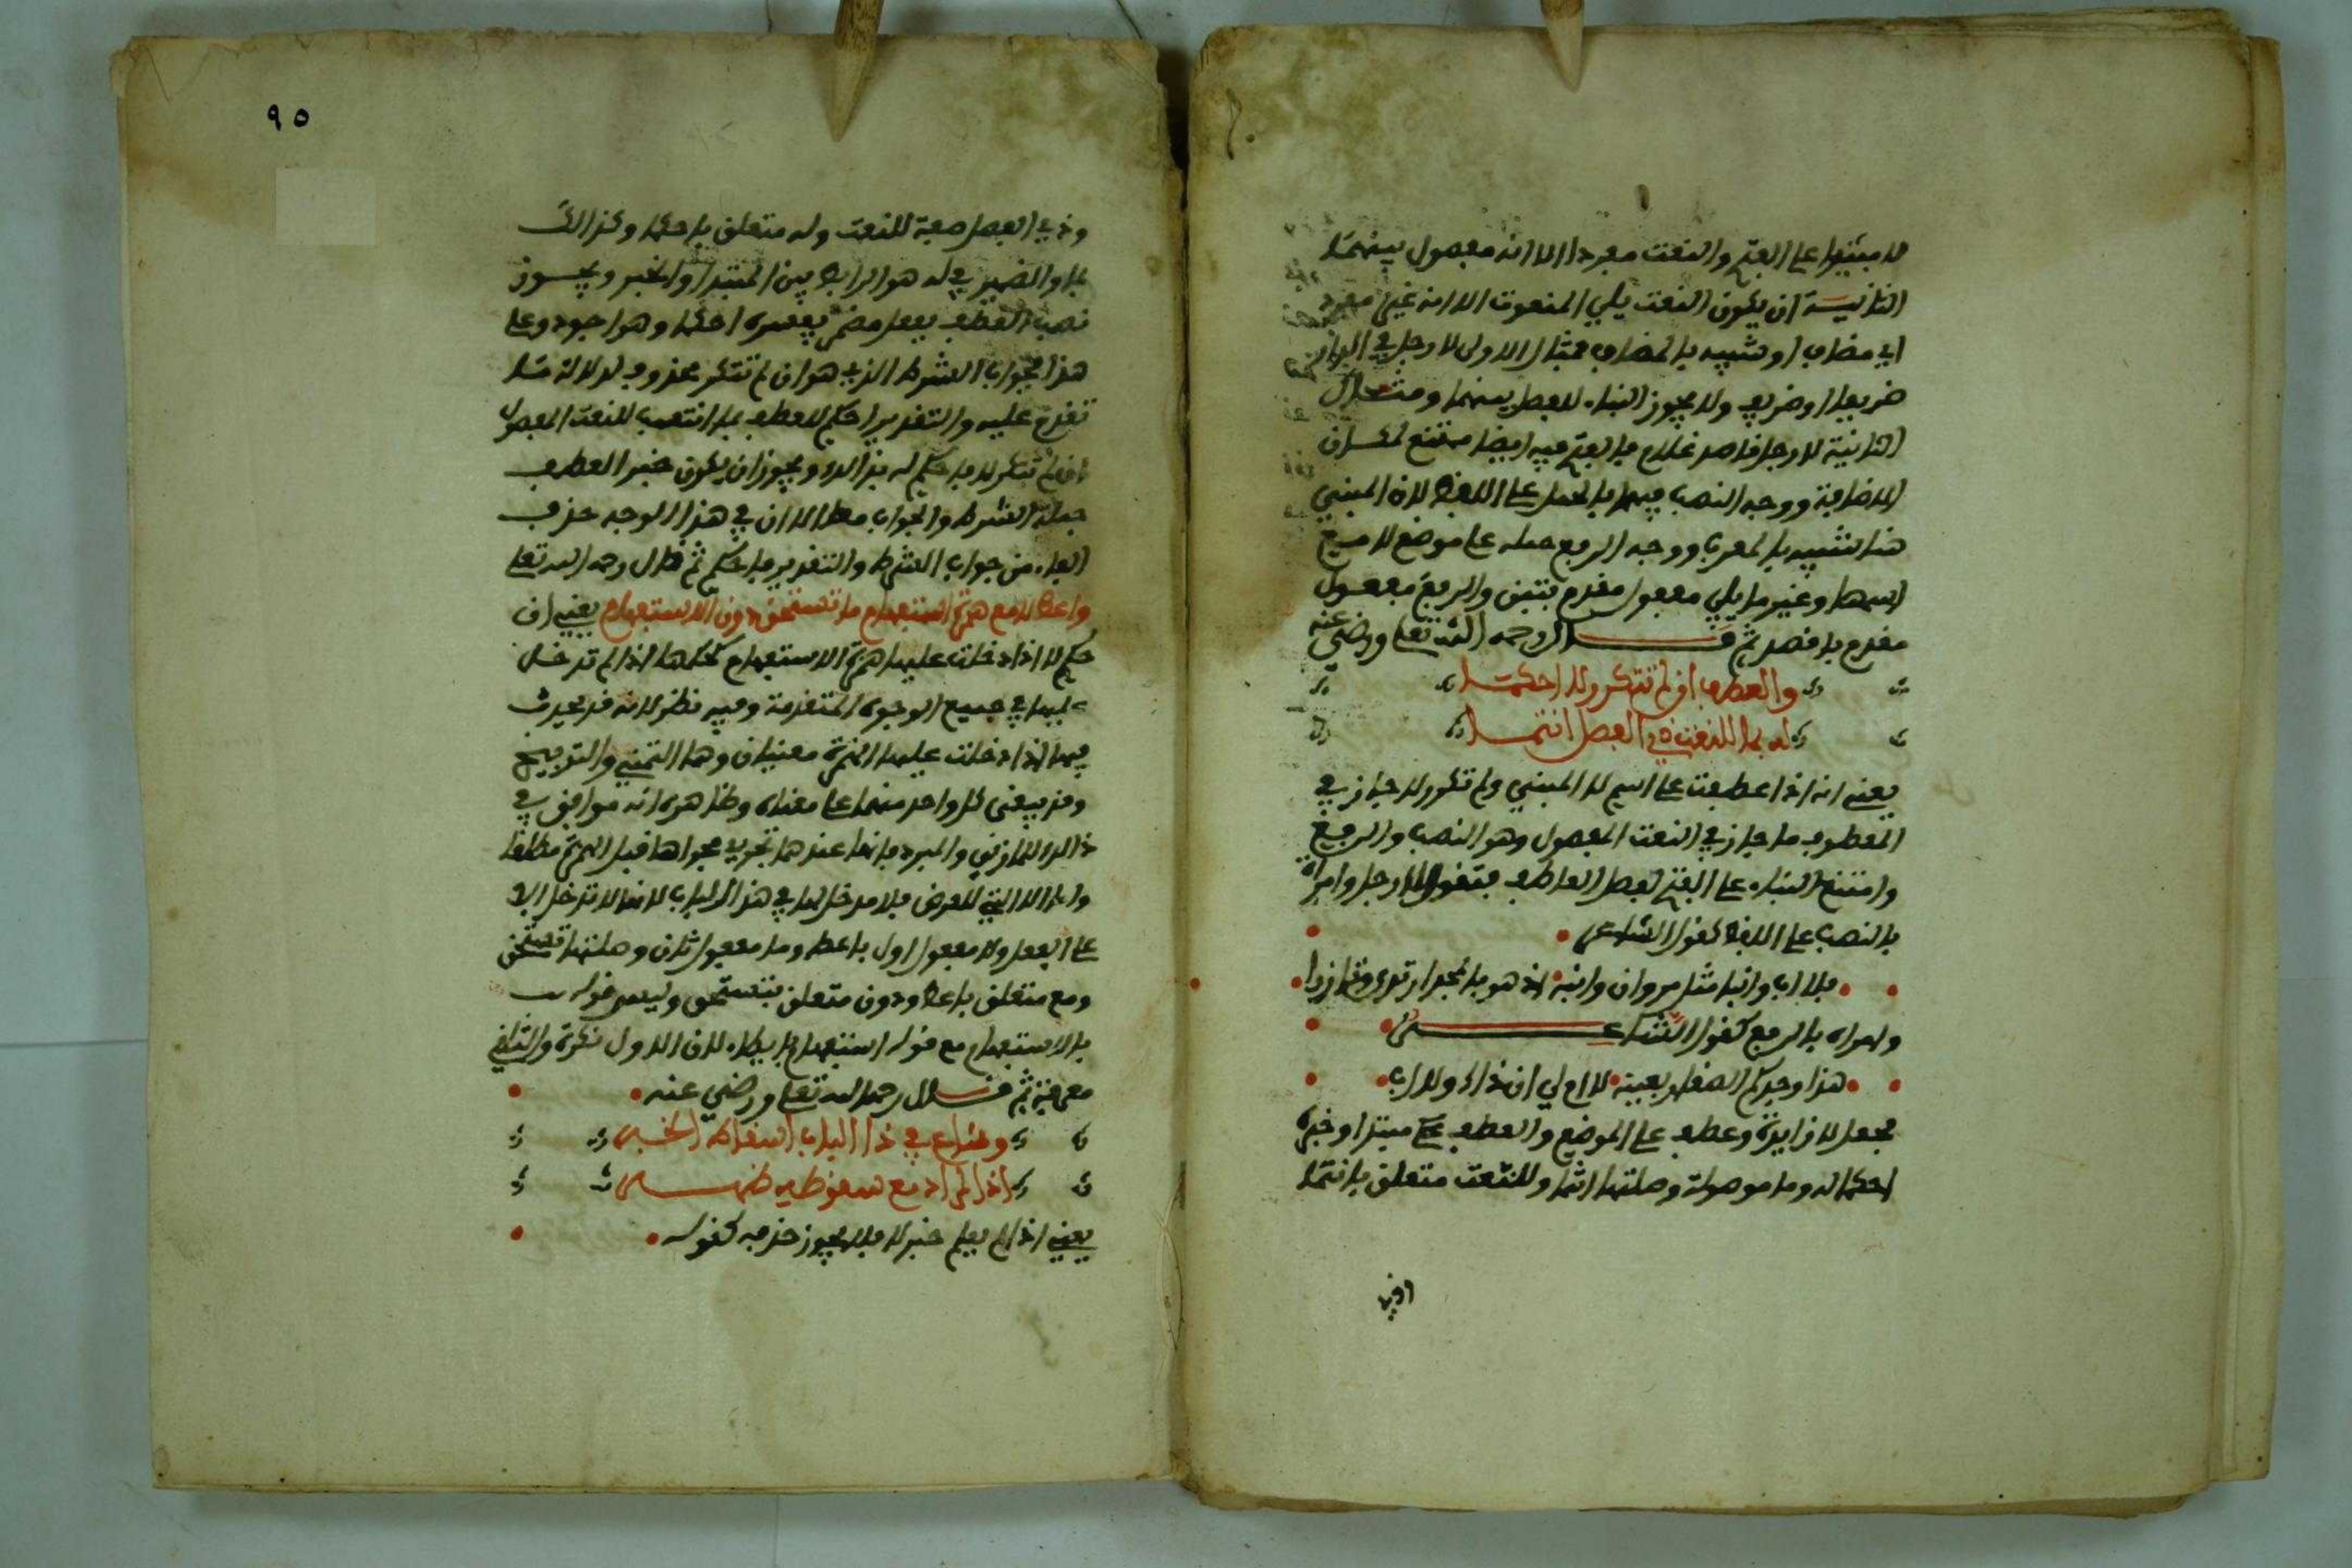 لا مبنيا على الفتح والنعت مفردا الا انه مفصول بينهما
الثانية ان يكون النعت يلي المنعوت الا انه غير مفرد
اي مضاف او شبيه بالمضاف فمثال الاولى لا رجل في الدار
ظريفا او ظريف ولا يجوز البناء للفصل بينهما ومثال
الثانية لا رجل قاصد غلام فالفتح فيه ايضا ممتنع لمكان
الاضافة ووجه النصب فيهما بالحمل على اللفظ لان المبني
هنا شبيه بالمعرب ووجه الرفع حمله على موضع لا مع
اسمها وغير ما يلي مفعول مقدم بتبن والرفع مفعول
مقدم باقصد ثم قال رحمه الله تعلى ورضي عنه
والعطف ان لم تتكرر لا احكما
له بما للنعت ذي الفصل انتما
يعني انه اذا عطفت على اسم لا المبني ولم تكرر لا جاز في
المعطوف ما جاز في النعت المفصول وهو النصب والرفع
وامتنع البناء على الفتح لفصل العاطف فتقول لا رجل وامراة
بالنصب على اللفظ كقول الشاعر
فلا اب وابنا مثل مروان وابنه اذ هو بالمجد ارتدى وتازرا
وامراة بالرفع كقول الشاعر
هذا وجدكم الصغار بعينه لا ام لي ان كان ذاك ولا اب
فجعل لا زايدة وعطف على الموضع والعطف مبتدا وخبره
احكما له وما موصولة وصلتها انتما وللنعت متعلق بانتما
وذي الفصل صفة للنعت وله متعلق باحكما وكذالك
بما والضمير في له هو الرابط بين المبتدا والخبر ويجوز
نصب العطف بفعل مضمر يفسره احكما وهو اجود وعلى
هذا فجواب الشرط الذي هو ان لم تتكرر محذوف لدلالة ما
تقدم عليه والتقدير احكم للعطف بما انتسب للنعت المفصول
ان لم تتكرر لا فاحكم له بذالك ويجوز ان يكون خبر العطف
جملة الشرط والجواب معا الا ان في هذا الوجه حذف
الفاء من جواب الشرط والتقدير فاحكم ثم قال رحمه الله تعلى
واعط لا مع همزة استفهام ما تستحق دون الاستفهام يعني ان
حكم لا اذا دخلت عليها همزة الاستفهام كحكمها اذا لم تدخل
عليها في جميع الوجوه المتقدمة وفيه نظر لانه قد يحدث
فيها اذا دخلت عليها الهمزة معنيان وهما التمني والتوبيخ
وقد يبقى كل واحد منهما على معناه وظاهره انه موافق في
ذالك للمازني والمبرد فانها عندهما تجري مجراها قبل الهمزة مطلقا
واما الا التي للعرض فلا مدخل لها في هذا الباب لانها لا تدخل الا
على الفعل ولا مفعول اول باعط وما مفعول ثان وصلتها تستحق
ومع متعلق باعط ودون متعلق بتستحق وليس قوله
بالاستفهام مع قوله استفهام بايطاء لان الاول نكرة والثاني
معرفة ثم قال رحمه الله تعلى ورضي عنه
وشاع في ذا الباب اسقاط الخبر
اذا المراد مع سقوطه ظهر
يعني اذا لم يعلم خبر لا فلا يجوز حذفه كقوله